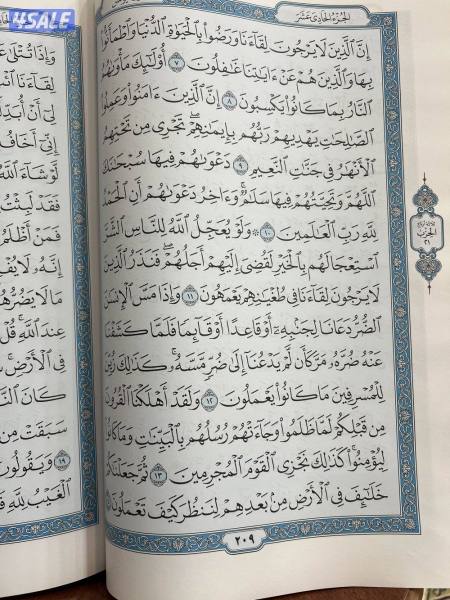 4SALE
الجزء الحادي عشر
إِنَّ الَّذِينَ لَا يَرْجُونَ لِقَاءَنَا وَرَضُوا بِالْحَيَوٰةِ الدُّنْيَا وَاطْمَأَنُّوا
بِهَا وَالَّذِينَ هُمْ عَنْ ءَايَٰتِنَا غَٰفِلُونَ ٧ أُولَٰئِكَ مَأْوَىٰهُمُ
النَّارُ بِمَا كَانُوا يَكْسِبُونَ ٨ إِنَّ الَّذِينَ ءَامَنُوا وَعَمِلُوا
الصَّٰلِحَٰتِ يَهْدِيهِمْ رَبُّهُم بِإِيمَٰنِهِمْ ۖ تَجْرِي مِن تَحْتِهِمُ
الْأَنْهَٰرُ فِي جَنَّٰتِ النَّعِيمِ ٩ دَعْوَىٰهُمْ فِيهَا سُبْحَٰنَكَ
اللَّهُمَّ وَتَحِيَّتُهُمْ فِيهَا سَلَٰمٌ ۚ وَءَاخِرُ دَعْوَىٰهُمْ أَنِ الْحَمْدُ
لِلَّهِ رَبِّ الْعَٰلَمِينَ ١٠ ۞ وَلَوْ يُعَجِّلُ اللَّهُ لِلنَّاسِ الشَّرَّ
اسْتِعْجَالَهُم بِالْخَيْرِ لَقُضِيَ إِلَيْهِمْ أَجَلُهُمْ ۖ فَنَذَرُ الَّذِينَ
لَا يَرْجُونَ لِقَاءَنَا فِي طُغْيَٰنِهِمْ يَعْمَهُونَ ١١ وَإِذَا مَسَّ الْإِنسَٰنَ
الضُّرُّ دَعَانَا لِجَنۢبِهِ أَوْ قَاعِدًا أَوْ قَائِمًا فَلَمَّا كَشَفْنَا
عَنْهُ ضُرَّهُ مَرَّ كَأَن لَّمْ يَدْعُنَا إِلَىٰ ضُرٍّ مَّسَّهُ ۚ كَذَٰلِكَ زُيِّنَ
لِلْمُسْرِفِينَ مَا كَانُوا يَعْمَلُونَ ١٢ وَلَقَدْ أَهْلَكْنَا الْقُرُونَ
مِن قَبْلِكُمْ لَمَّا ظَلَمُوا ۙ وَجَاءَتْهُمْ رُسُلُهُم بِالْبَيِّنَٰتِ وَمَا كَانُوا
لِيُؤْمِنُوا ۚ كَذَٰلِكَ نَجْزِي الْقَوْمَ الْمُجْرِمِينَ ١٣ ثُمَّ جَعَلْنَٰكُمْ
خَلَٰئِفَ فِي الْأَرْضِ مِنۢ بَعْدِهِمْ لِنَنظُرَ كَيْفَ تَعْمَلُونَ
٢٠٩
الحزب
٢١
وَإِذَا تُتْلَىٰ
لِقَاءَنَا
لِي أَنْ أُبَدِّلَهُ
إِنِّي أَخَافُ
لَّوْ شَاءَ اللَّهُ
فَقَدْ لَبِثْتُ
فَمَنْ أَظْلَمُ
إِنَّهُ لَا
مَا لَا يَضُرُّهُمْ
عِندَ اللَّهِ ۚ قُلْ
فِي الْأَرْضِ ۚ
كَانَ النَّاسُ
سَبَقَتْ مِن
١٩ وَيَقُولُونَ
الْغَيْبُ لِلَّهِ